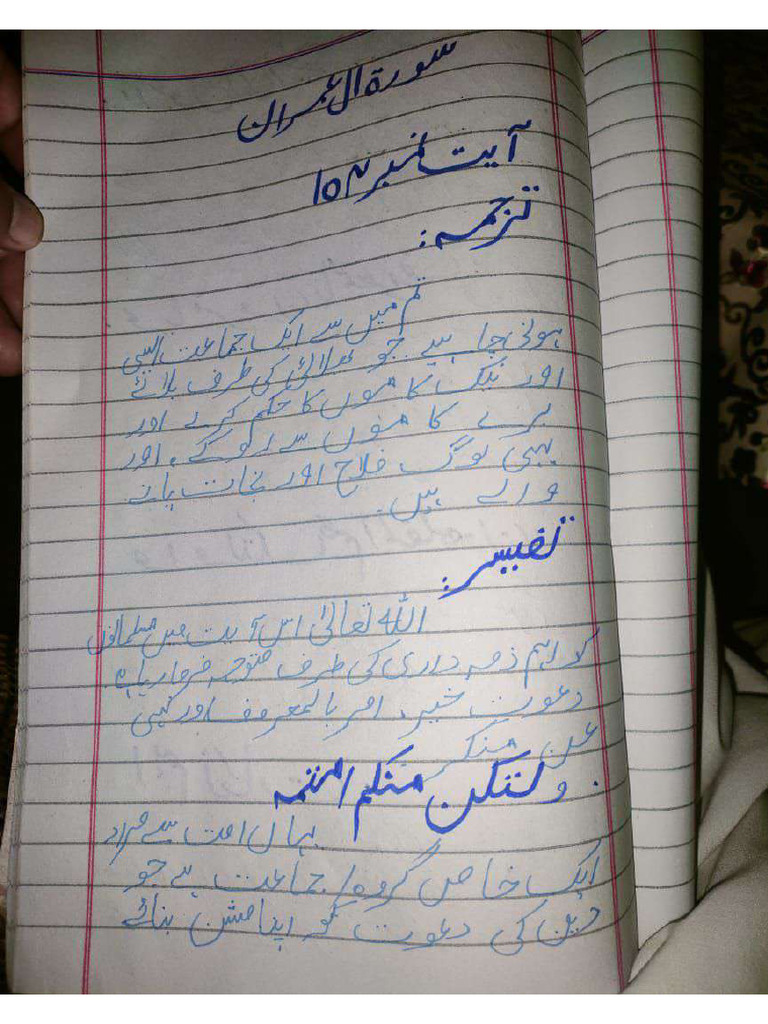 سورۃ ال عمران
آیت نمبر ۱۰۴
ترجمہ:
تم میں سے ایک جماعت ایسی
ہونی چاہیے جو بھلائی کی طرف بلائے
اور نیک کاموں کا حکم کرے اور
برے کاموں سے روکے، اور
یہی لوگ فلاح اور نجات پانے
والے ہیں۔
تفسیر:
اللہ تعالیٰ اس آیت میں مسلمانوں
کو اہم ذمہ داری کی طرف متوجہ فرما رہا ہے
دعوت خیر، امر بالمعروف اور نہی
عن منکر
ولتکن منکم امتہ
یہاں امت سے مراد
ایک خاص گروہ/جماعت ہے جو
دین کی دعوت کو اپنا مشن بنائے